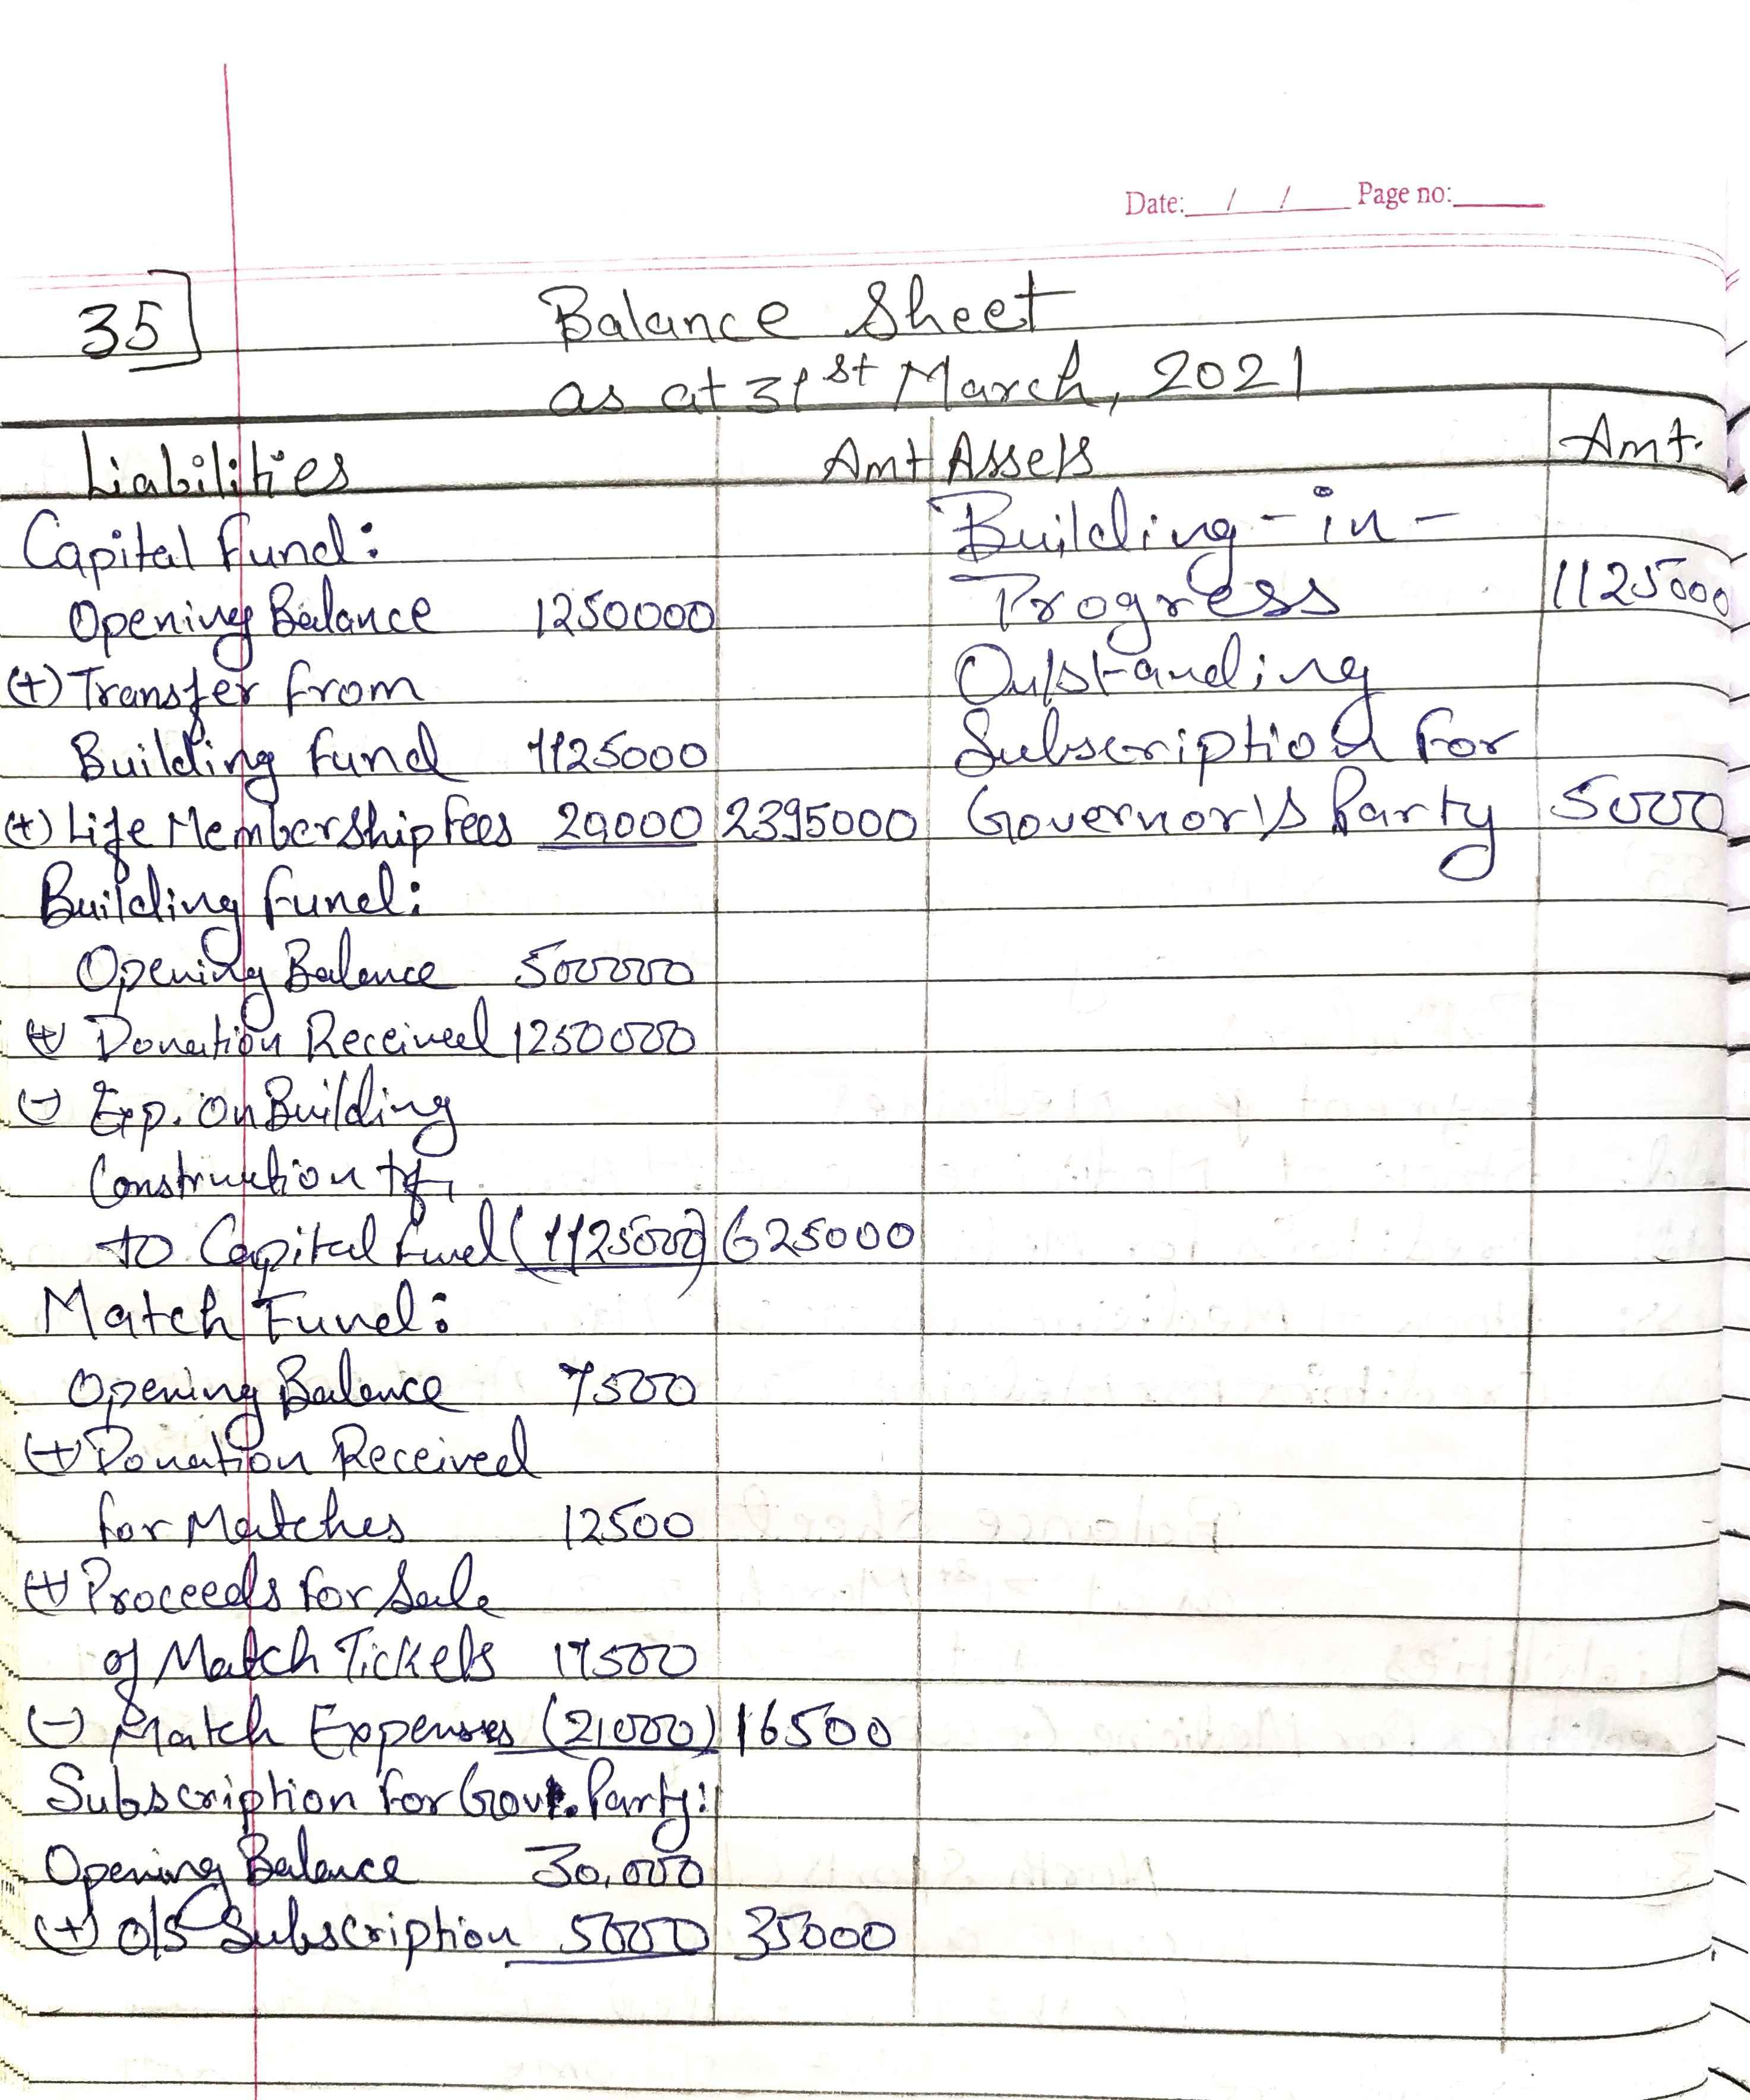 Date: / / Page no:
35] Balance Sheet
as at 31st March, 2021
Liabilities Amt Assets Amt.
Capital Fund: Building-in-
Opening Balance 1250000 Progress 1125000
(+) Transfer from Outstanding
Building Fund 1125000 Subscription For
(+) Life Membership Fees 20000 2395000 Governor's Party 5000
Building Fund:
Opening Balance 500000
(+) Donation Received 1250000
(-) Exp. on Building
Construction tf,
to Capital Fund (1125000) 625000
Match Fund:
Opening Balance 7500
(+) Donation Received
for Matches 12500
(+) Proceeds for Sale
of Match Tickets 17500
(-) Match Expenses (21000) 16500
Subscription for Govt. Party:
Opening Balance 30,000
(+) O/S Subscription 5000 35000